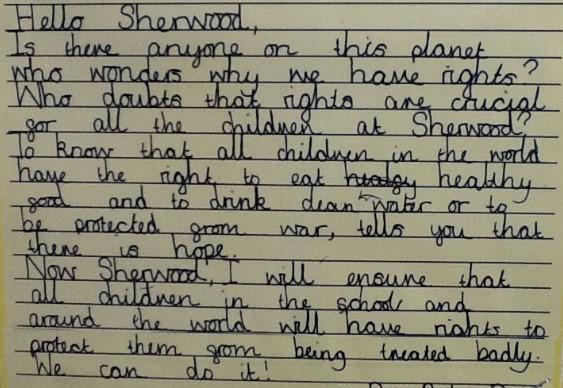 Hello Sherwood,
Is there anyone on this planet
who wonders why we have rights?
Who doubts that rights are crucial
for all the children at Sherwood?
To know that all children in the world
have the right to eat healthy
food and to drink clean water or to
be protected from war, tells you that
there is hope.
Now Sherwood, I will ensure that
all children in the school and
around the world will have rights to
protect them from being treated badly.
We can do it!